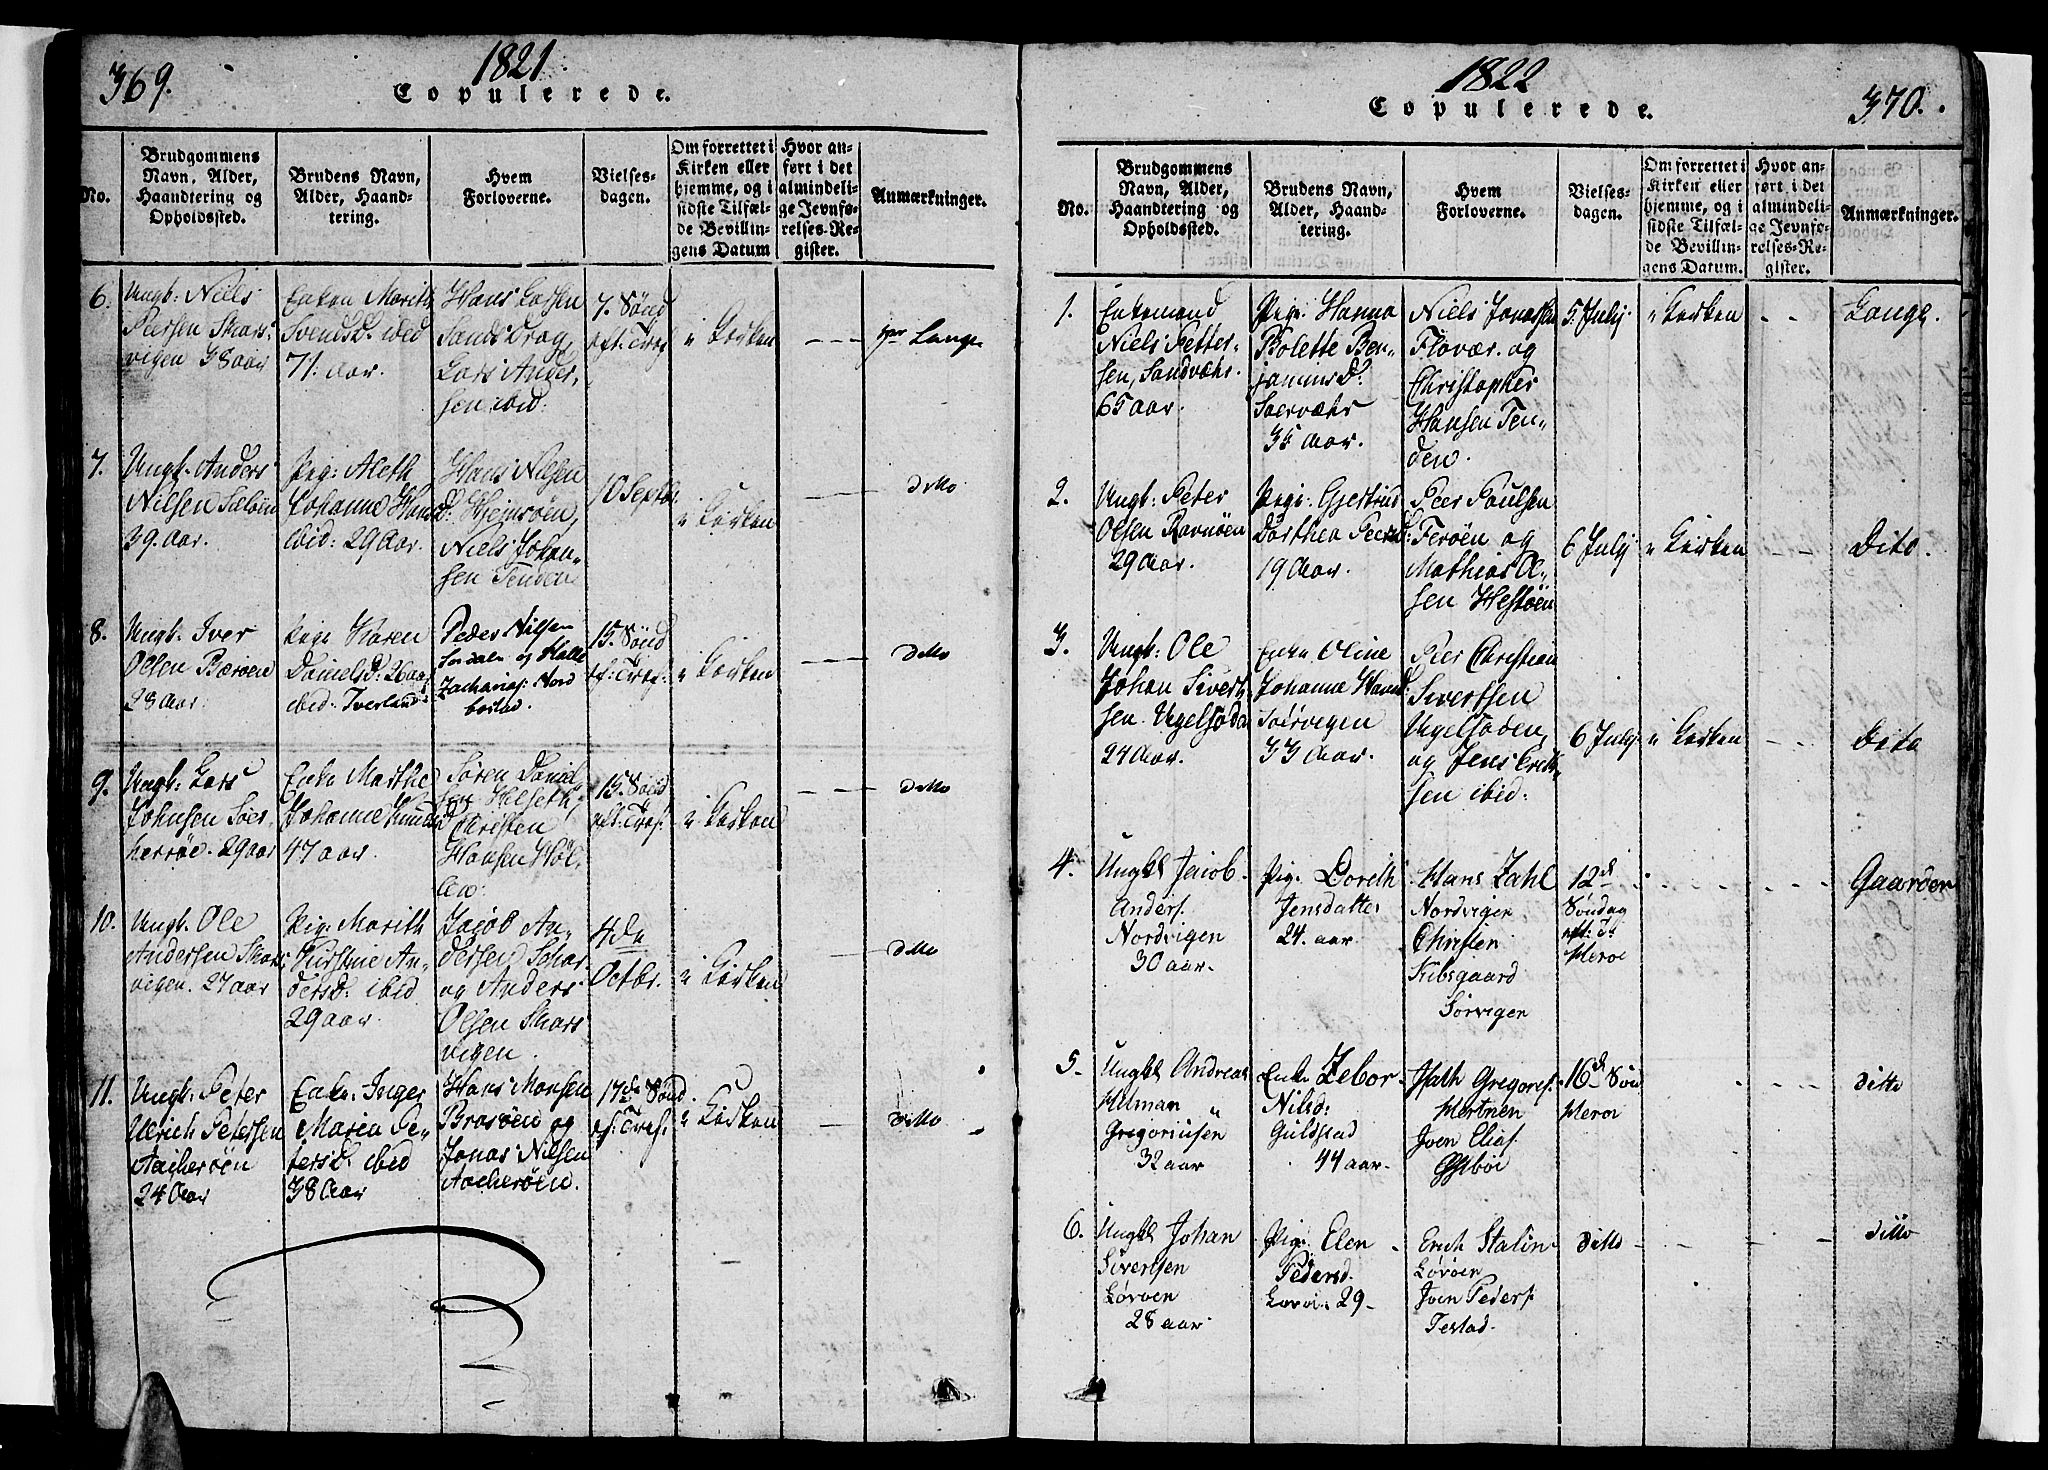 369.
1821.
Copulerede.
No.
Brudgommens
Navn, Alder,
Haandtering og
Opholdssted.
Brudens Navn,
Alder, Haand-
tering.
Hvem
Forloverne.
Vielses-
dagen.
Om forrettet i
Kirken eller
hjemme, og i
sidste Tilfæl-
de Bevillin-
gens Datum
Hvor an-
ført i det
almindeli-
ge Jevnfø-
relses-Re-
gister.
Anmærkninger.
6.
Ungk: Niels
Peersen Skars-
vigen 38 aar
Enken Marith
Svendsd: ibid
71: aar.
Hans Larsen
Lars Ander-
sen ibid:
7. Sönd
eft: Tref
i Kirken
hr Lange
7.
Ungk. Anders
Nilsen
39. Aar.
Pig: Aleth
Johanne Hansd:
ibid: 29 Aar.
Hans Nilsen
Niels Johan-
sen Tenden
10 Septbr
i Kirken
ditto
8.
Ungk. Iver
Olsen Bærøen
28 Aar.
Pige Karen
Daniels D: 26 aar
ibid:
Peder Nilsen
15. Sönd
ef: Tref:
i Kirken
ditto
9.
Ungk: Lars
Johnsen Sör-
herröe. 29 aar
Enke Marthe
Johanne Knudsd
47 aar.
Sören Daniel-
sen Helseth,
Christen
Hansen
15. Sönd
eft: Tref.
i Kirken
ditto
10.
Ungk. Ole
Andersen Skars-
vigen. 27 aar
Pig: Marith
Kirstine An-
dersd: ibid
29 aar.
Jacob An-
dersen
og Anders
Olsen Skars
vigen.
4de
Octbr.
i Kirken
ditto
11.
Ungk: Peter
Ulrich Petersen
Aacherøen
24 Aar
Enke: Inger
Maria Pe-
tersd: ibid
38 Aar
Hans Monsen
Brasöen og
Jonas Nilsen
Aacherøen.
17de Sönd.
ef: Tref:
i Kirken
ditto
1822
Copulerede.
370.
No.
Brudgommens
Navn, Alder,
Haandtering og
Opholdssted.
Brudens Navn,
Alder, Haand-
tering.
Hvem
Forloverne.
Vielses-
dagen.
Om forrettet i
Kirken eller
hjemme, og i
sidste Tilfæl-
de Bevillin-
gens Datum.
Hvor an-
ført i det
almindeli-
ge Jevnfø-
relses-Re-
gister.
Anmærkninger.
1.
Enkemand
Niels Petter-
sen, Sandvær.
65 aar.
Pige: Hanna
Bolette Ben-
jaminsd:
35 Aar.
Niels Jonassen
Flovær. og
Christopher
Hansen Ten-
den.
5 Julij
i Kirken
Lange.
2.
Ungk: Peter
Olsen Ravnöen
29 Aar.
Pige: Gjertrud
Dorthea Peersd:
19 Aar.
Peer Poulsen
Ferøen og
Mathias Ol-
sen Hestøen
6 Julij
i Kirken
Dito.
3.
Ungk: Ole
Johan Sivert-
sen. Vegelsöden
24 Aar.
Enke Oline
Johanne Hansd:
Sörvigen
33 Aar.
Peer Christian
Sivertsen
Vegelsöden,
og Jens Erik-
sen ibid:
6 Julij
i Kirken
Dito
4.
Ungkl Jacob
Anders.
Nordvigen
30 aar.
Pig: Doreth
Jensdatter
24. aar.
Hans Zahl
Nordvigen
Christen
Kibsgaard
Sörvigen
12d
Söndag
eft: T:
Herøe
Gaarder
5.
Ungkl Andreas
Hilman
Gregoriusen
32 aar
Enke Zebor
Nilsd:
Guldstad
44 aar.
Gregores.
Joen Elias.
16d Sön
Herøe
ditto
6.
Ungkl Johan
Sivertsen
Lövöen
28 aar.
Pig: Elen
Pedersd.
29
Erich Stalin
Lövöen
Joen Peders.
ditto
ditto